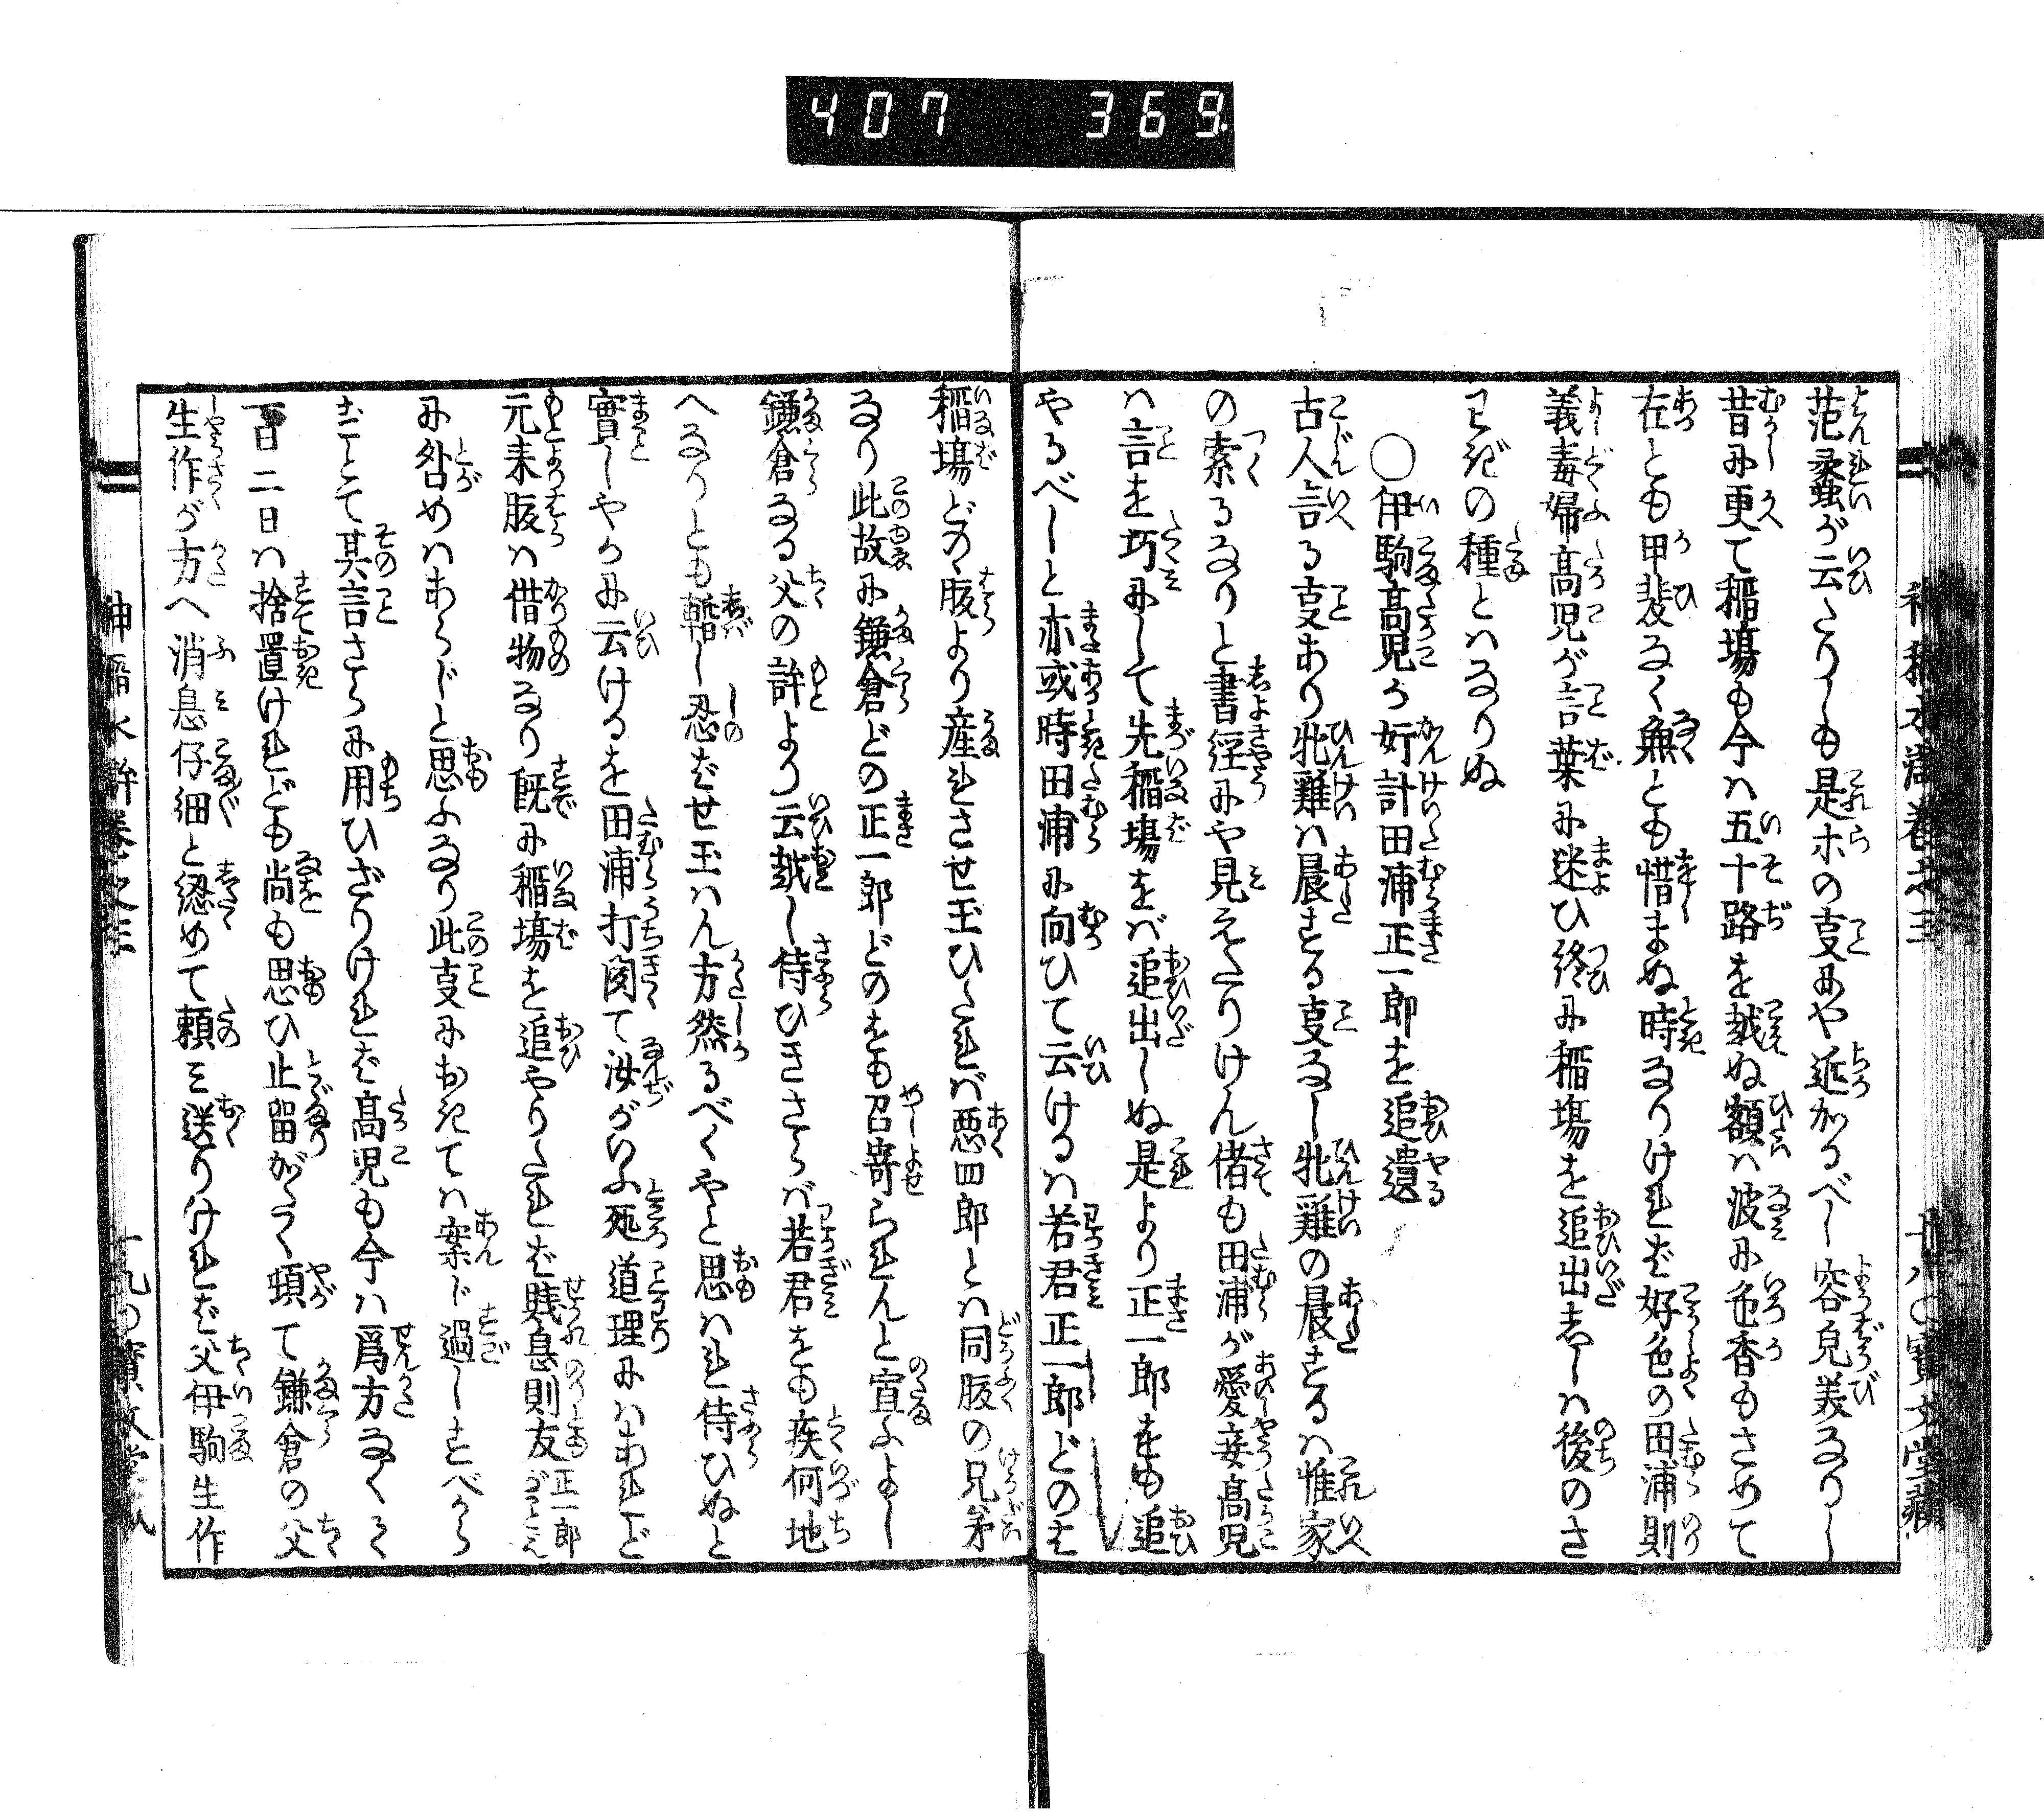 407 369.
范蠡が云たりしも是ホの叓にや近かるべし容皃美なりし
昔に更て稲塲も今ハ五十路を越ぬ額ハ波に色香もさめて
在とも甲斐なく無とも惜まぬ時なりけれバ好色の田浦則
義毒婦髙児が言葉に迷ひ終に稲塲を追出せしハ後のさ
わぎの種とハなりぬ
○伊駒髙児が奸計田浦正一郎を追遺
古人言る叓あり牝雞ハ晨する叓なし牝雞の晨するハ惟家
の索るなりと書経にや見えたりけん偖も田浦が愛妾髙児
ハ言を巧にして先稲塲をバ追出しぬ是より正一郎をも追
やるべしと亦或時田浦に向ひて云けるハ若君正一郎どのは
稲塲どのゝ腹より産れさせ玉ひたれバ悪四郎とハ同腹の兄弟
なり此故に鎌倉どの正一郎どのをも召寄られんと宣ふよし
鎌倉なる父の許より云越し侍ひきさらバ若君をも疾何地
へなりとも暫し忍ばせ玉ハん方然るべくやと思ハれ侍ひぬと
實しやかに云けるを田浦打聞て汝がいふ処道理にハあれど
元来腹ハ借物なり既に稲塲を追やりたれバ賤息則友正一郎がことを
に咎めハあらじと思ふなり此叓におきてハ案じ過しすべから
ずとて其言さらに用ひざりけれバ髙児も今ハ爲方なくて
一日二日ハ捨置けれども尚も思ひ止留がたく頓て鎌倉の父
生作が方へ消息仔細と認めて頼み送りけれバ父伊駒生作
神稲水滸巻之三
十八〇寳文堂藏
神稲水滸巻之三
十九〇寳文堂藏